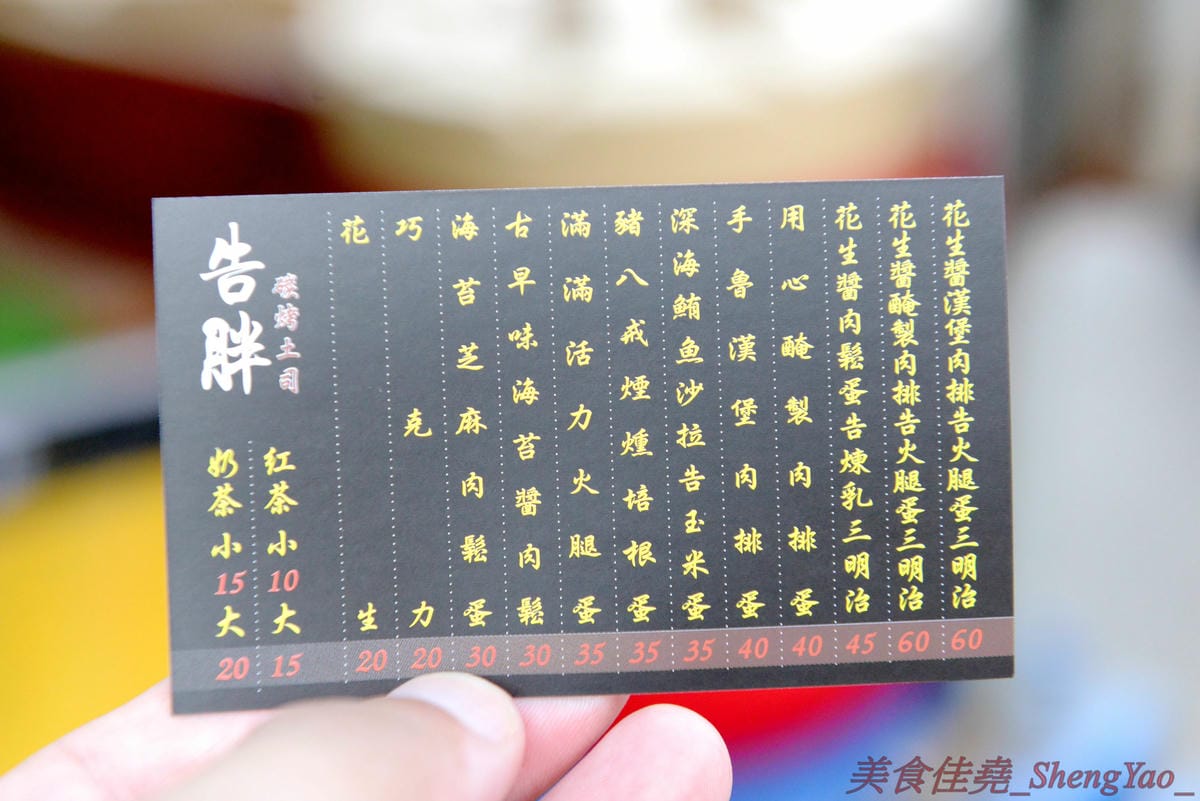 告胖
碳烤土司
花生 20
巧克力 20
海苔芝麻肉鬆蛋 30
古早味海苔醬肉鬆 30
滿滿活力火腿蛋 35
豬八戒煙燻培根蛋 35
深海鮪魚沙拉告玉米蛋 35
手魯漢堡肉排蛋 40
用心醃製肉排蛋 40
花生醬肉鬆蛋告煉乳三明治 45
花生醬醃製肉排告火腿蛋三明治 60
花生醬漢堡肉排告火腿蛋三明治 60
奶茶小 15 大 20
紅茶小 10 大 15
美食佳堯_ShengYao_